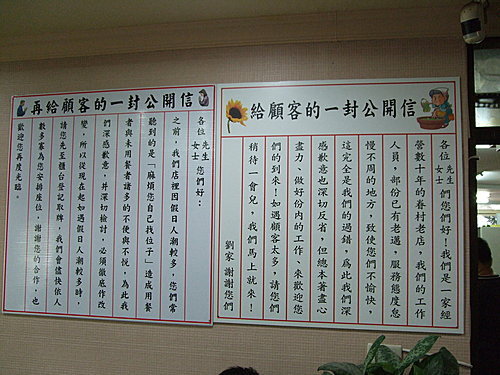 給顧客的一封公開信
各位 先生 女士 們您們好!我們是一家經
營數十年的眷村老店,我們的工作
人員,部份已有老邁,服務態度怠
慢不周的地方,致使您們不愉快,
這完全是我們的過錯、為此我們深
感歉意也深切反省 但總本著盡心
盡力、做好份內的工作、來歡迎您
們的到來!如遇顧客太多,請您們
稍待一會兒,我們馬上就來!
劉家 謝謝您們
再給顧客的一封公開信
各位 先生 女士 您們好:
之前,我們店裡因假日人潮較多,您們常
聽到的是「麻煩您自己找位子」造成用餐
者與未用餐者諸多的不便與不悅,為此我
們深感歉意,並深切檢討,必須徹底作改
變,所以從現在起如遇假日人潮較多時,
請您先至櫃台登記取牌,我們會儘快依人
數多寡為您安排座位,謝謝您的合作,也
歡迎您再度光臨。